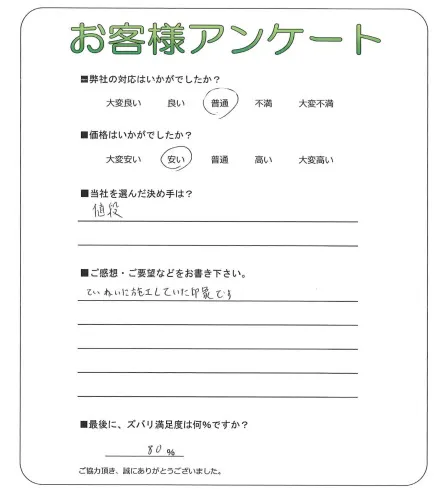 お客様アンケート
■弊社の対応はいかがでしたか？
大変良い 良い 普通 不満 大変不満
■価格はいかがでしたか？
大変安い 安い 普通 高い 大変高い
■当社を選んだ決め手は？
値段
■ご感想・ご要望などをお書き下さい。
ていねいに施工していた印象です
■最後に、ズバリ満足度は何%ですか？
80 %
ご協力頂き、誠にありがとうございました。